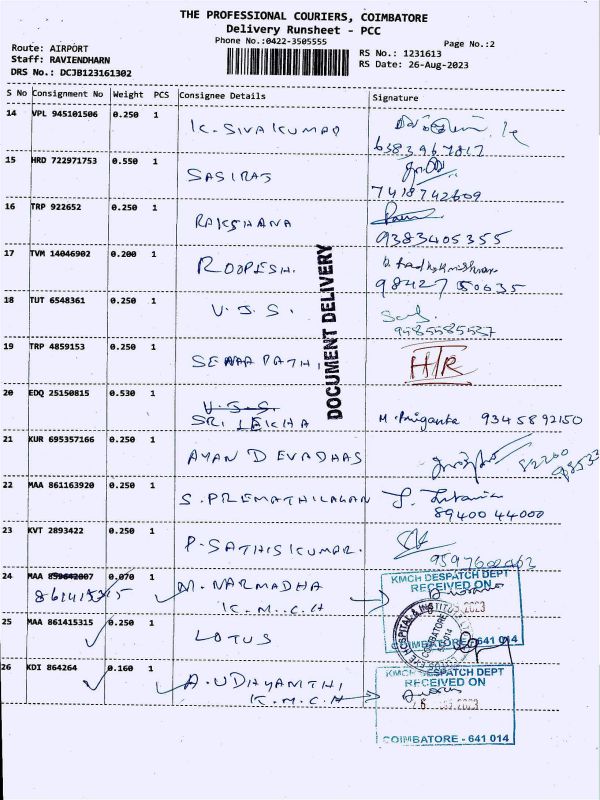 THE PROFESSIONAL COURIERS, COIMBATORE
Delivery Runsheet - PCC
Phone No.:0422-3505555
Page No.:2
Route: AIRPORT
Staff: RAVIENDHARN
DRS No.: DCJB123161302
RS No.: 1231613
RS Date: 26-Aug-2023
S No Consignment No Weight PCS Consignee Details Signature
14 VPL 945101506 0.250 1 K. SIVAKUMAR
6383967817
15 HRD 722971753 0.550 1 SASIRAJ
7418742609
16 TRP 922652 0.250 1 RAKSHANA
9383405355
17 TVM 14046902 0.200 1 ROOPESH.
98427 50635
18 TUT 6548361 0.250 1 V.J.S.
9585585537
19 TRP 4859153 0.250 1 H/R
DOCUMENT DELIVERY
20 EDQ 25150815 0.530 1 V.J.S.
SRI LEKHA M. Priyanka 9345892150
21 KUR 695357166 0.250 1 AYAN DEVADHAS
22 MAA 861163920 0.250 1 S. PREMATHILAGAN
89400 44000
23 KVT 2893422 0.250 1 P. SATHISKUMAR.
24 MAA 0.070 1 M. NARMADHA
K.M.C.H
KMCH DESPATCH DEPT
RECEIVED ON
COIMBATORE - 641 014
25 MAA 861415315 0.250 1 LOTUS
26 KDI 864264 0.160 1 A. UDHYANTHI
K.M.C.H
KMCH DESPATCH DEPT
RECEIVED ON
COIMBATORE - 641 014